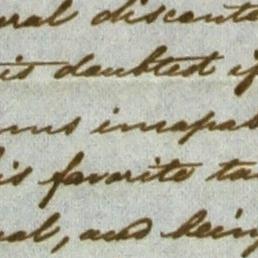 ural disconta
is doubted if
ms incapab
is favorite ta
ual, and being